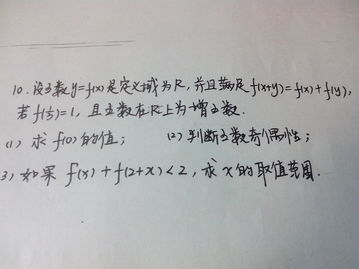 10.设函数y=f(x)是定义域为R,并且满足f(x+y)=f(x)+f(y),
若f(⅓)=1,且函数在R上为增函数.
(1) 求f(0)的值; (2) 判断函数奇偶性;
3) 如果f(x)+f(2+x)<2,求x的取值范围.